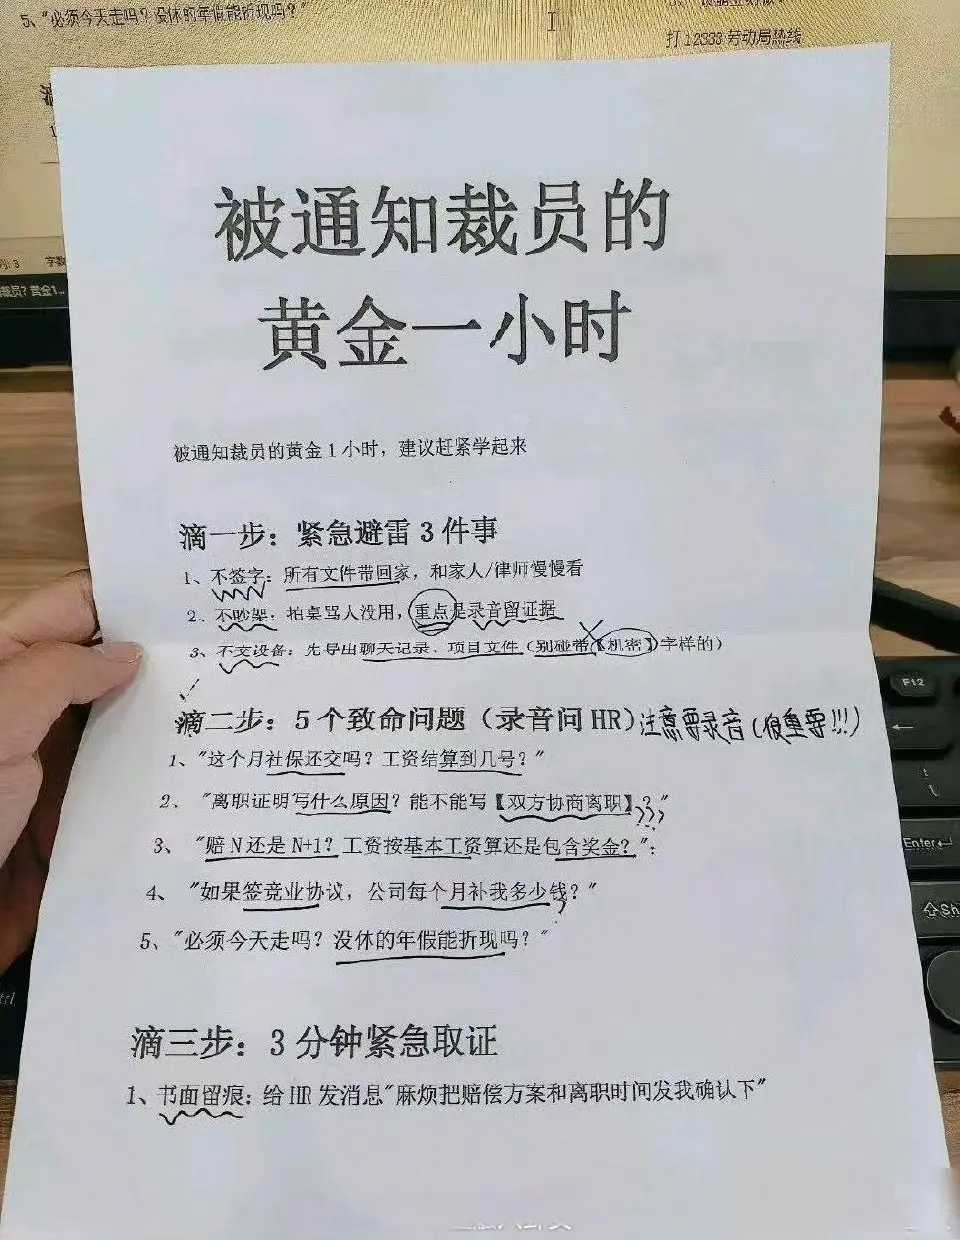 5、"必须今天走吗？没休的年假能折现吗？"
打 12333 劳动局热线
字数
裁员？黄金1...
被通知裁员的
黄金一小时
被通知裁员的黄金1小时，建议赶紧学起来
滴一步：紧急避雷3件事
1、不签字：所有文件带回家，和家人/律师慢慢看
2、不吵架：拍桌骂人没用，重点是录音留证据
3、不交设备：先导出聊天记录、项目文件（别碰带【机密】字样的）
滴二步：5个致命问题（录音问HR）注意要录音（很重要!!!）
1、"这个月社保还交吗？工资结算到几号？"
2、"离职证明写什么原因？能不能写【双方协商离职】？"???
3、"赔N还是N+1？工资按基本工资算还是包含奖金？"：
4、"如果签竞业协议，公司每个月补我多少钱？"?
5、"必须今天走吗？没休的年假能折现吗？"
滴三步：3分钟紧急取证
1、书面留痕：给HR发消息"麻烦把赔偿方案和离职时间发我确认下"
F12
Enter
Sh